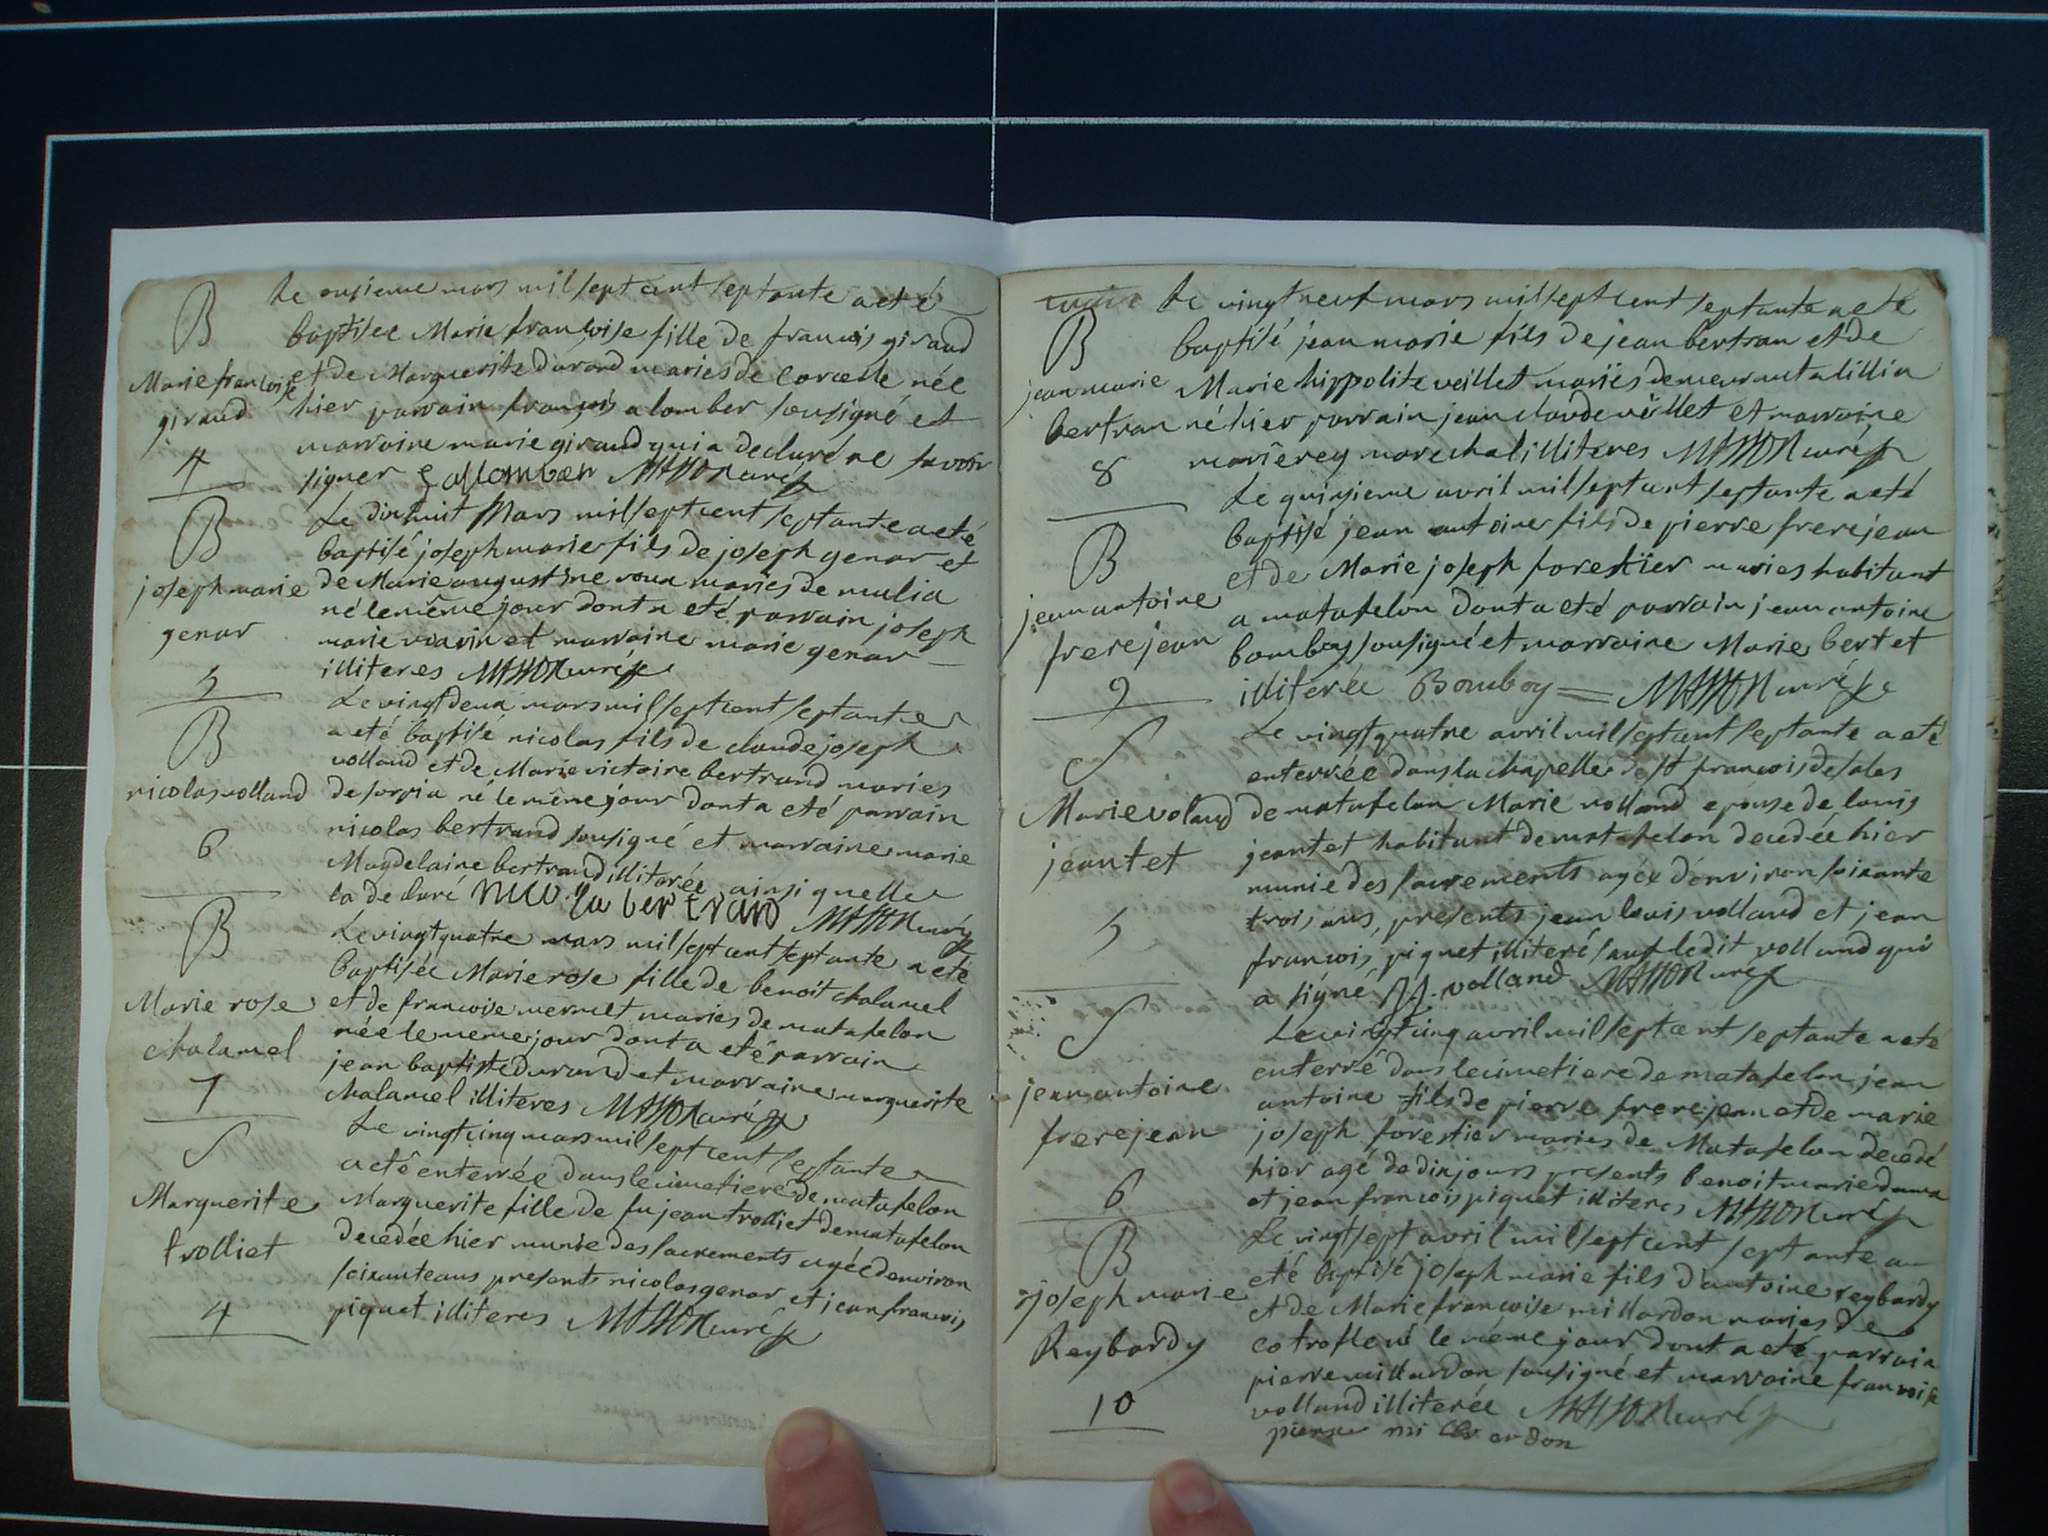 B
Le onsieme mars mil sept cent septante a eté
baptisee Marie francoise fille de francois giraud
Marie francoise
et de Marguerite durand mariés de corcelle née
giraud
hier parrain francois alomber sousigné et
marraine marie giraud qui a declaré ne savoir
4
signer f allomber MASSON curé
B
Le dix huit Mars mil sept cent septante a eté
baptisé joseph marie fils de joseph genar et
joseph marie
de Marie augustine roux mariés de mulia
genar
né le même jour dont a eté parrain joseph
marie et marraine marie genar
5
illiteres MASSON curé
B
Le vingt deux mars mil sept cent septante
a eté baptisé nicolas fils de claude joseph
volland et de Marie victoire bertrand maries
nicolas volland
de sorpia né le même jour dont a eté parrain
nicolas bertrand sousigné et marraine marie
6
Magdelaine bertrand illiterée ainsi quelle
la declaré nico la ber trand MASSON curé
B
Le vingt quatre mars mil sept cent septante a eté
baptisée Marie rose fille de benoit chalamel
Marie rose
et de francoise mermet maries de matafelon
chalamel
née le meme jour dont a eté parrain
jean baptiste durand et marraine marguerite
7
chalamel illiteres MASSON curé
S
Le vingt cinq mars mil sept cent septante
a eté enterrée dans le cimetiere de matafelon
Marguerite
Marguerite fille de fu jean trolliet de matafelon
trolliet
decedée hier munie des sacrements agée denviron
soixante ans presents nicolas genar et jean francois
4
piquet illiteres MASSON curé
B
Le vingt neuf mars mil sept cent septante a eté
baptisé jean marie fils de jean bertran et de
jean marie
Marie hippolite veillet mariés demeurant a lillia
bertran
né hier parrain jean claude veillet et marraine
8
marie rey marechal illiteres MASSON curé
Le quinsieme avril mil sept cent septante a eté
B
baptisé jean antoine fils de pierre frerejean
et de Marie joseph forestier maries habitant
jean antoine
a matafelon dont a eté parrain jean antoine
frerejean
bomboy sousigné et marraine Marie bert et
9
illiterée Bomboy MASSON curé
S
Le vingt quatre avril mil sept cent septante a eté
enterrée dans la chapelle de st francois de sales
Marie voland
de matafelon Marie volland epouse de louis
jeantet
jeantet habitant de matafelon decedée hier
munie des sacrements agée denviron soixante
trois ans, presents jean louis volland et jean
5
francois piquet illiteré sauf ledit volland qui
a signé J.L. volland MASSON curé
S
Le vingt cinq avril mil sept cent septante a eté
enterré dans le cimetiere de matafelon jean
jean antoine
antoine fils de pierre frerejean et de marie
frerejean
joseph forestier maries de Matafelon decedé
hier agé de dix jours presents benoit marie duma
6
et jean francois piquet illiteres MASSON curé
B
Le vingt sept avril mil sept cent septante a
eté baptisé joseph marie fils dantoine reybardy
joseph marie
et de Marie francoise millardon maries de
Reybardy
cotrofle né le même jour dont a eté parrain
pierre millardon sousigné et marraine francoise
10
volland illiterée MASSON curé
pierre mi llar don